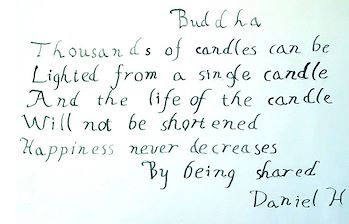 Buddha
Thousands of candles can be
Lighted from a single candle
And the life of the candle
Will not be shortened
Happiness never decreases
By being shared
Daniel H